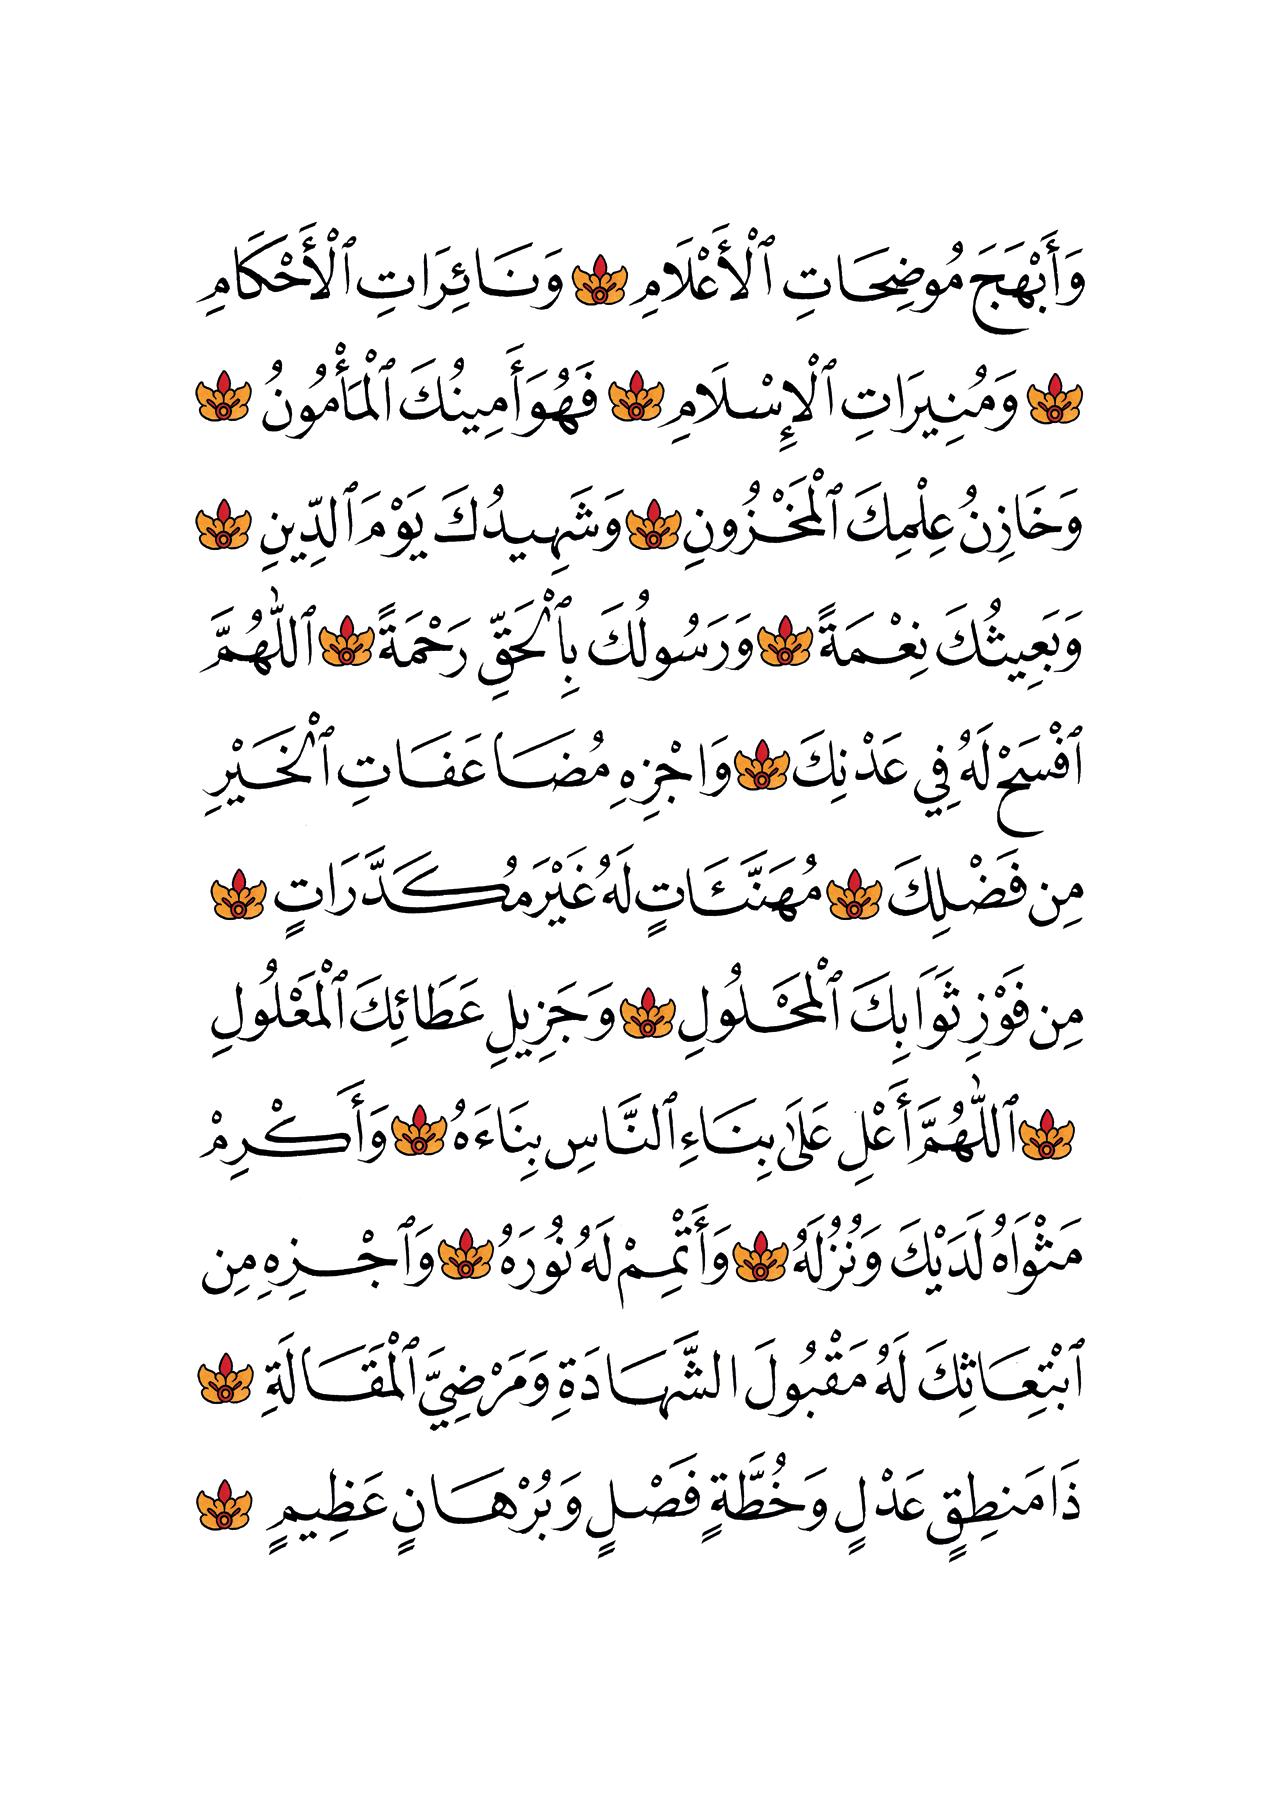 وَأَبْهَجَ مُوضِحَاتِ ٱلْأَعْلَامِ وَنَائِرَاتِ ٱلْأَحْكَامِ
وَمُنِيرَاتِ ٱلْإِسْلَامِ فَهُوَ أَمِينُكَ ٱلْمَأْمُونُ
وَخَازِنُ عِلْمِكَ ٱلْمَخْزُونِ وَشَهِيدُكَ يَوْمَ ٱلدِّينِ
وَبَعِيثُكَ نِعْمَةً وَرَسُولُكَ بِٱلْحَقِّ رَحْمَةً ٱللّٰهُمَّ
ٱفْسَحْ لَهُ فِي عَدْنِكَ وَاجْزِهِ مُضَاعَفَاتِ ٱلْخَيْرِ
مِن فَضْلِكَ مُهَنَّئَاتٍ لَهُ غَيْرَ مُكَدَّرَاتٍ
مِن فَوْزِ ثَوَابِكَ ٱلْمَحْلُولِ وَجَزِيلِ عَطَائِكَ ٱلْمَعْلُولِ
ٱللّٰهُمَّ أَعْلِ عَلَىٰ بِنَاءِ ٱلنَّاسِ بِنَاءَهُ وَأَكْرِمْ
مَثْوَاهُ لَدَيْكَ وَنُزُلَهُ وَأَتْمِمْ لَهُ نُورَهُ وَٱجْزِهِ مِن
ٱبْتِعَاثِكَ لَهُ مَقْبُولَ الشَّهَادَةِ وَمَرْضِيَّ ٱلْمَقَالَةِ
ذَا مَنطِقٍ عَدْلٍ وَخُطَّةٍ فَصْلٍ وَبُرْهَانٍ عَظِيمٍ